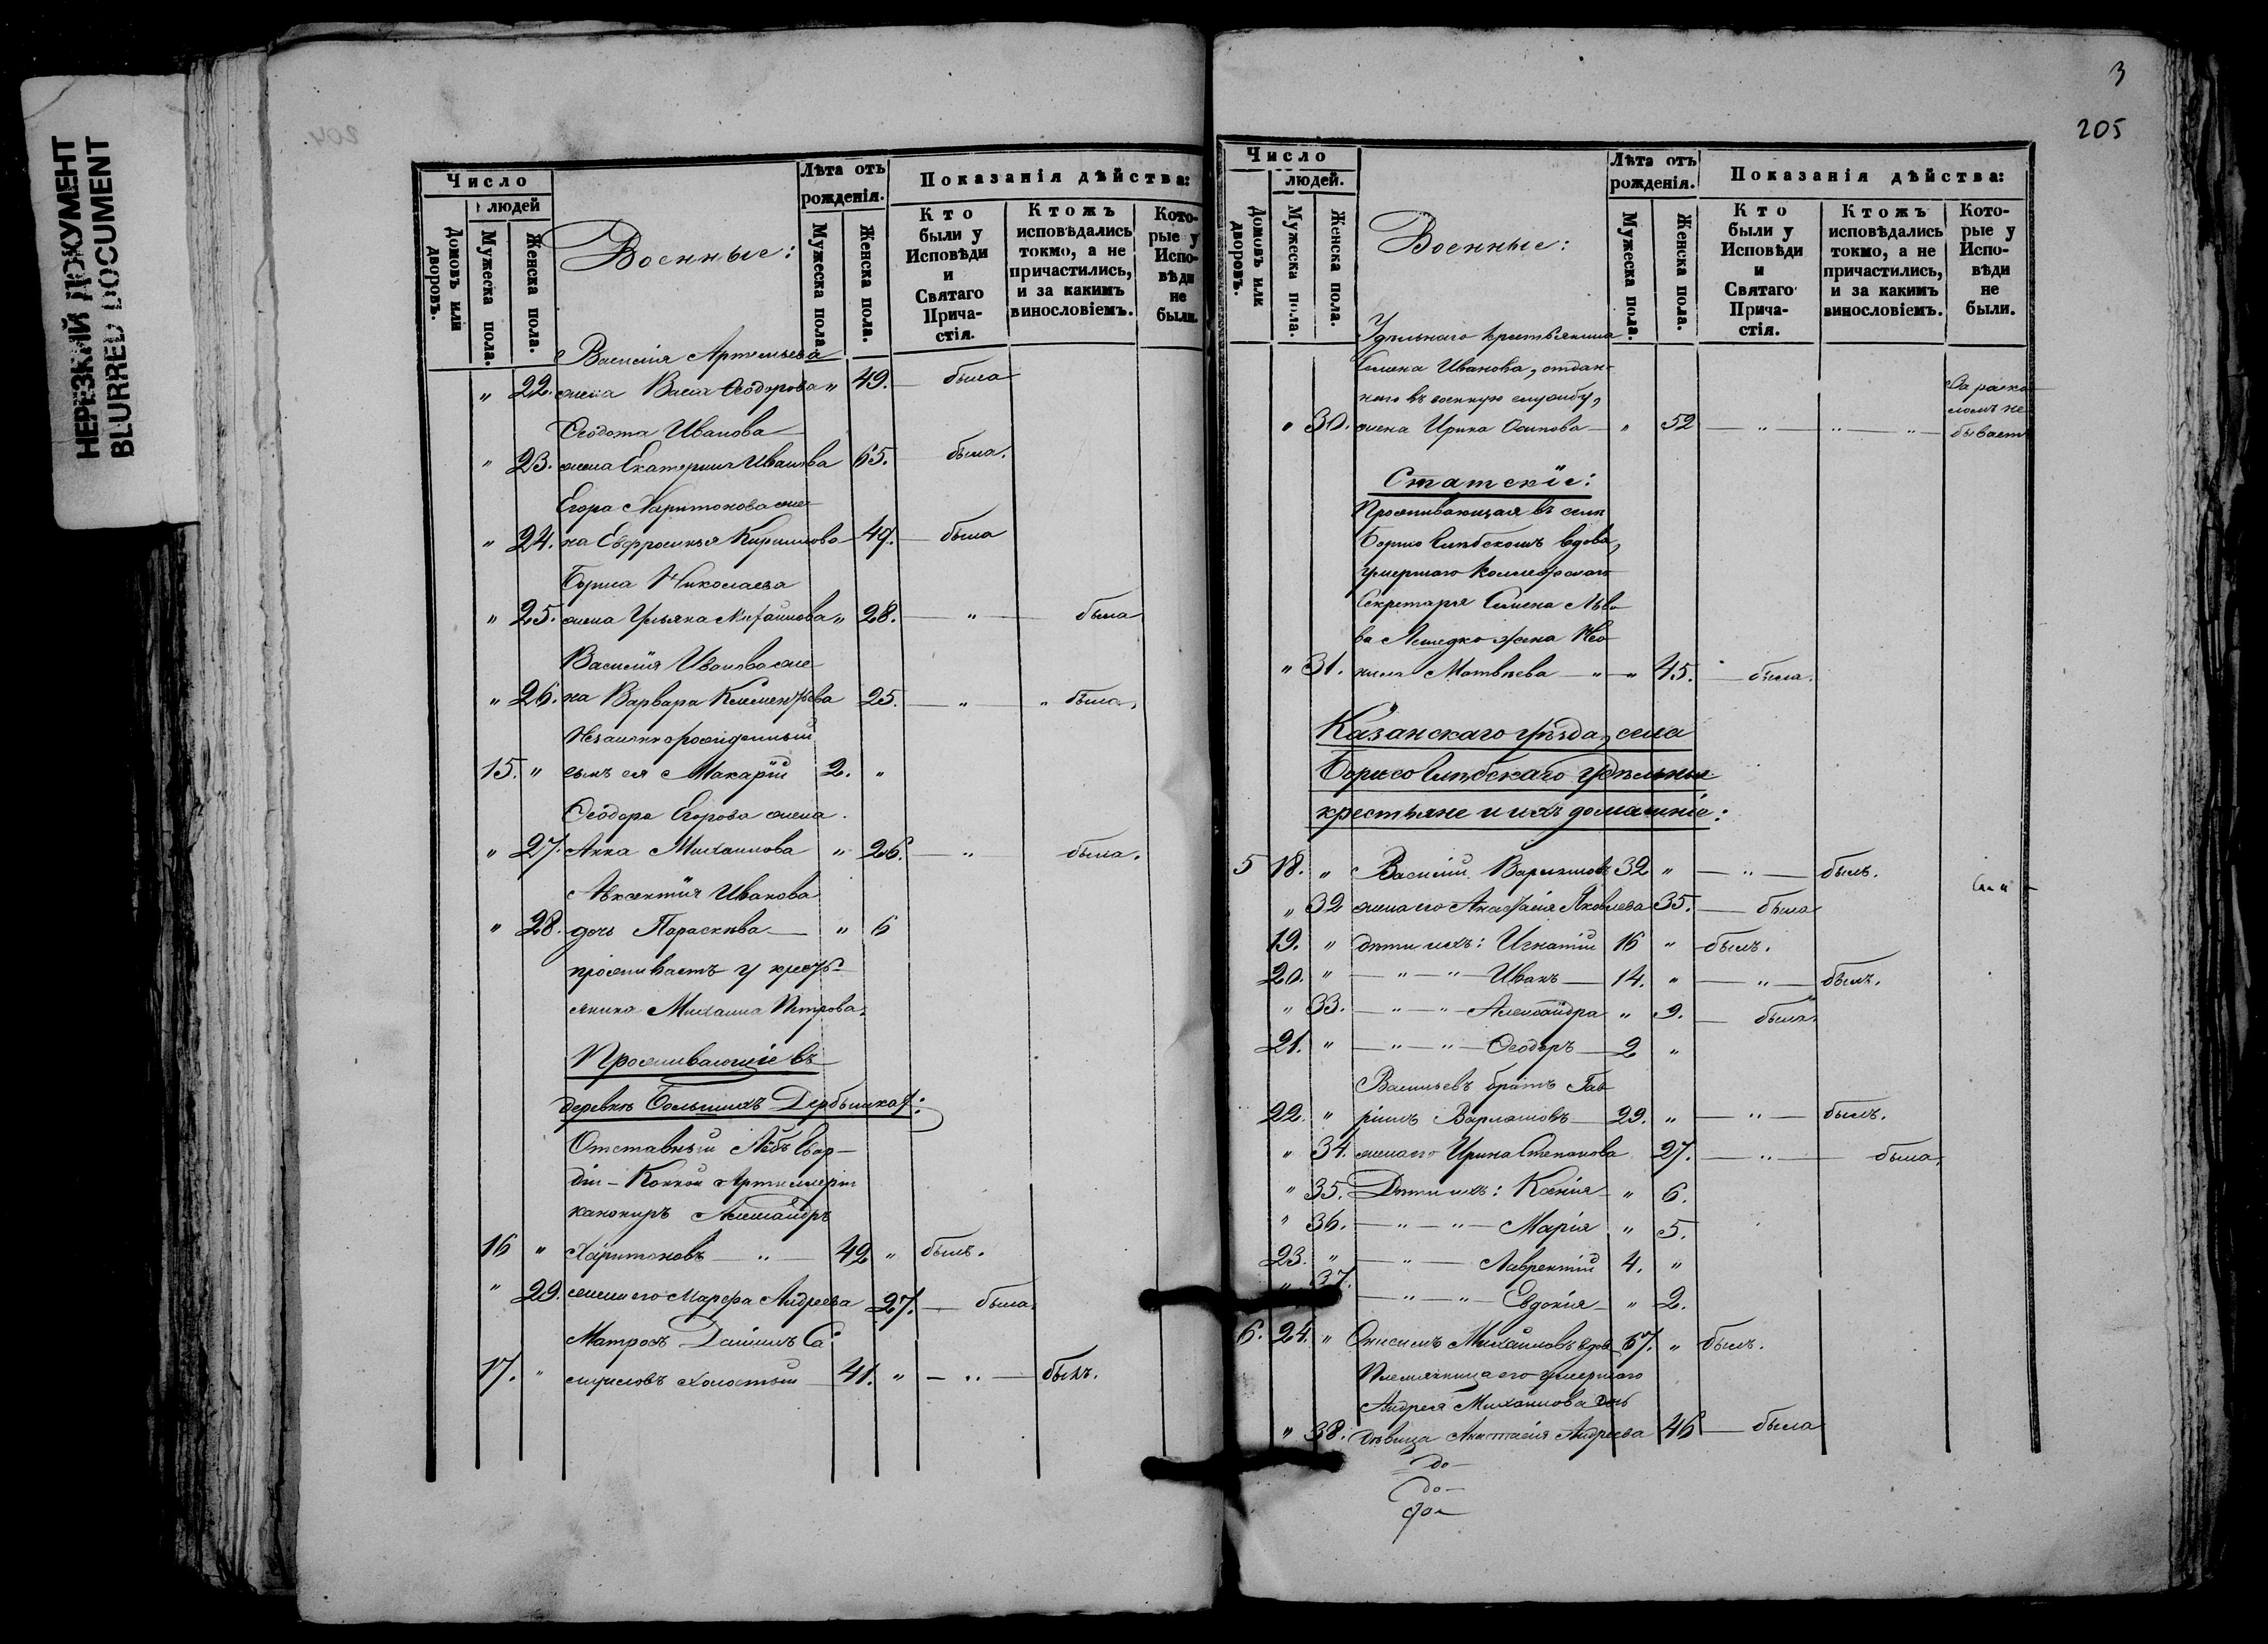 НЕРЕЗКИЙ ДОКУМЕНТ
BLURRED DOCUMENT
204.
Число
людей
Домовъ или дворовъ.
Мужеска пола.
Женска пола.
Военные:
Лѣта отъ рожденія.
Мужеска пола
Женска пола.
Показанія дѣйства:
Кто были у Исповѣди и Святаго Прича-стія.
Ктожъ исповѣдались токмо, а не причастились, и за какимъ винословіемъ.
Кото-рые у Испо-вѣди не были.
Василія Артемьева
" 22. жена Васса Ѳеодорова " 49. была
Ѳеодота Иванова
" 23. жена Екатерина Иванова 65. была.
Егора Харитонова же
" 24. на Евфросинья Кирилова 49. была
Бориса Николаева
" 25. жена Ульяна Михаилова " 28. " была
Василія Иванова же
" 26. на Варвара Климентьева 25. " " была,
Незаконнорожденный
15. " сынъ ея Макарій 2. "
Ѳеодора Егорова жена
" 27. Анна Михаилова " 26. " была.
Авксентія Иванова
" 28. дочь Параскева " 6
проживаетъ у кресть
янина Михаила Петрова.
Проживающіе въ
деревнѣ Большихъ Дербышках:
Отставный Лейбъ Гвар-
діи - Конной Артиллеріи
канониръ Александръ
16 " Харитоновъ " 42 " былъ.
" 29. жена его Марѳа Андреева 27. была.
Матросъ Даніилъ Са
17. " холостый 41. " " былъ.
3
205
Число
людей.
Домовъ или дворовъ.
Мужеска пола.
Женска пола.
Военные:
Лѣта отъ рожденія.
Мужеска пола.
Женска пола.
Показанія дѣйства:
Кто были у Исповѣди и Святаго Прича-стія.
Ктожъ исповѣдались токмо, а не причастились, и за какимъ винословіемъ.
Кото-рые у Испо-вѣди не были.
Удѣльнаго крестьянина
Семена Иванова, отдан-
наго въ военную службу,
" 30. жена Ирина Осипова " 52 " " " За раско
ломъ не
бываетъ
Статскіе:
Проживающая въ селѣ
Борисоглѣбскомъ вдова,
умершаго Коллежскаго
Секретаря Семена Льво
ва жена Нео
" 31. нила Матвѣева " " 45. была.
Казанскаго уѣзда, села
Борисоглѣбскаго удѣльные
крестьяне и ихъ домашніе:
5 18. " Василій Варламовъ 32 " " былъ.
" 32 жена его Анастасія Яковлева 35. была
19. " дѣти ихъ: Игнатій 16 " былъ.
20. " " " Иванъ 14. " " былъ.
" 33. " " Александра " 9. была.
21. " " " Ѳеодоръ 2 "
Васильевъ братъ Гав
22. " ріилъ Варламовъ 29. " " былъ.
" 34. жена его Ирина Степанова 27. " была.
" 35. Дѣти ихъ: Ксенія " 6.
" 36. " " Марія " 5.
23. " " Лаврентій 4. "
" 37. " " Евдокія " 2.
6. 24. " Онисимъ Михаиловъ вдов 67. " былъ.
Племянница его умершаго
Андрея Михаилова дочь
" 38. дѣвица Анастасія Андреева 46 была
до
до